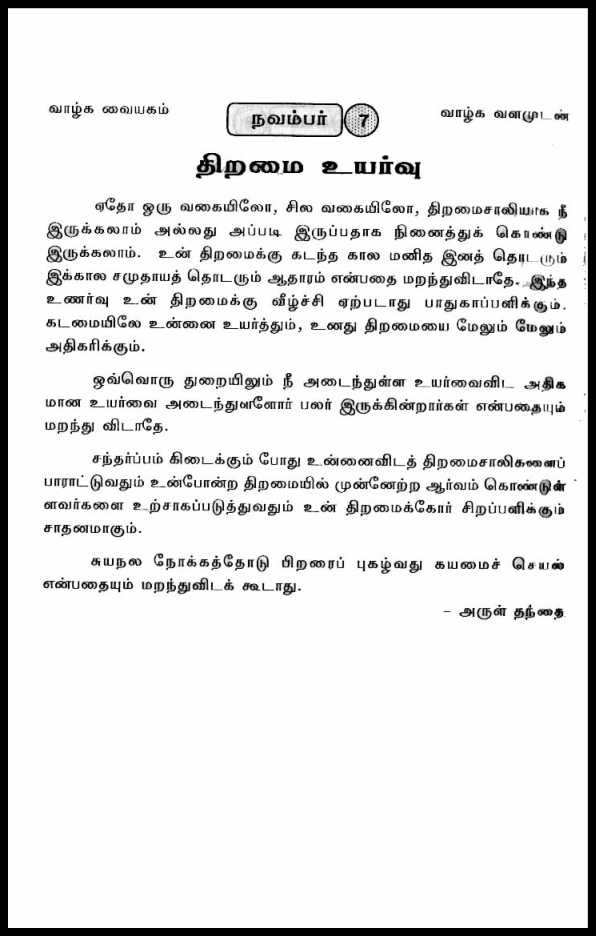 வாழ்க வையகம்
நவம்பர் 7
வாழ்க வளமுடன்
திறமை உயர்வு
ஏதோ ஒரு வகையிலோ, சில வகையிலோ, திறமைசாலியாக நீ
இருக்கலாம் அல்லது அப்படி இருப்பதாக நினைத்துக் கொண்டு
இருக்கலாம். உன் திறமைக்கு கடந்த கால மனித இனத் தொடரும்
இக்கால சமுதாயத் தொடரும் ஆதாரம் என்பதை மறந்துவிடாதே. இந்த
உணர்வு உன் திறமைக்கு வீழ்ச்சி ஏற்படாது பாதுகாப்பளிக்கும்.
கடமையிலே உன்னை உயர்த்தும், உனது திறமையை மேலும் மேலும்
அதிகரிக்கும்.
ஒவ்வொரு துறையிலும் நீ அடைந்துள்ள உயர்வைவிட அதிக
மான உயர்வை அடைந்துள்ளோர் பலர் இருக்கின்றார்கள் என்பதையும்
மறந்து விடாதே.
சந்தர்ப்பம் கிடைக்கும் போது உன்னைவிடத் திறமைசாலிகளைப்
பாராட்டுவதும் உன்போன்ற திறமையில் முன்னேற்ற ஆர்வம் கொண்டுள்
ளவர்களை உற்சாகப்படுத்துவதும் உன் திறமைக்கோர் சிறப்பளிக்கும்
சாதனமாகும்.
சுயநல நோக்கத்தோடு பிறரைப் புகழ்வது கயமைச் செயல்
என்பதையும் மறந்துவிடக் கூடாது.
– அருள் தந்தை